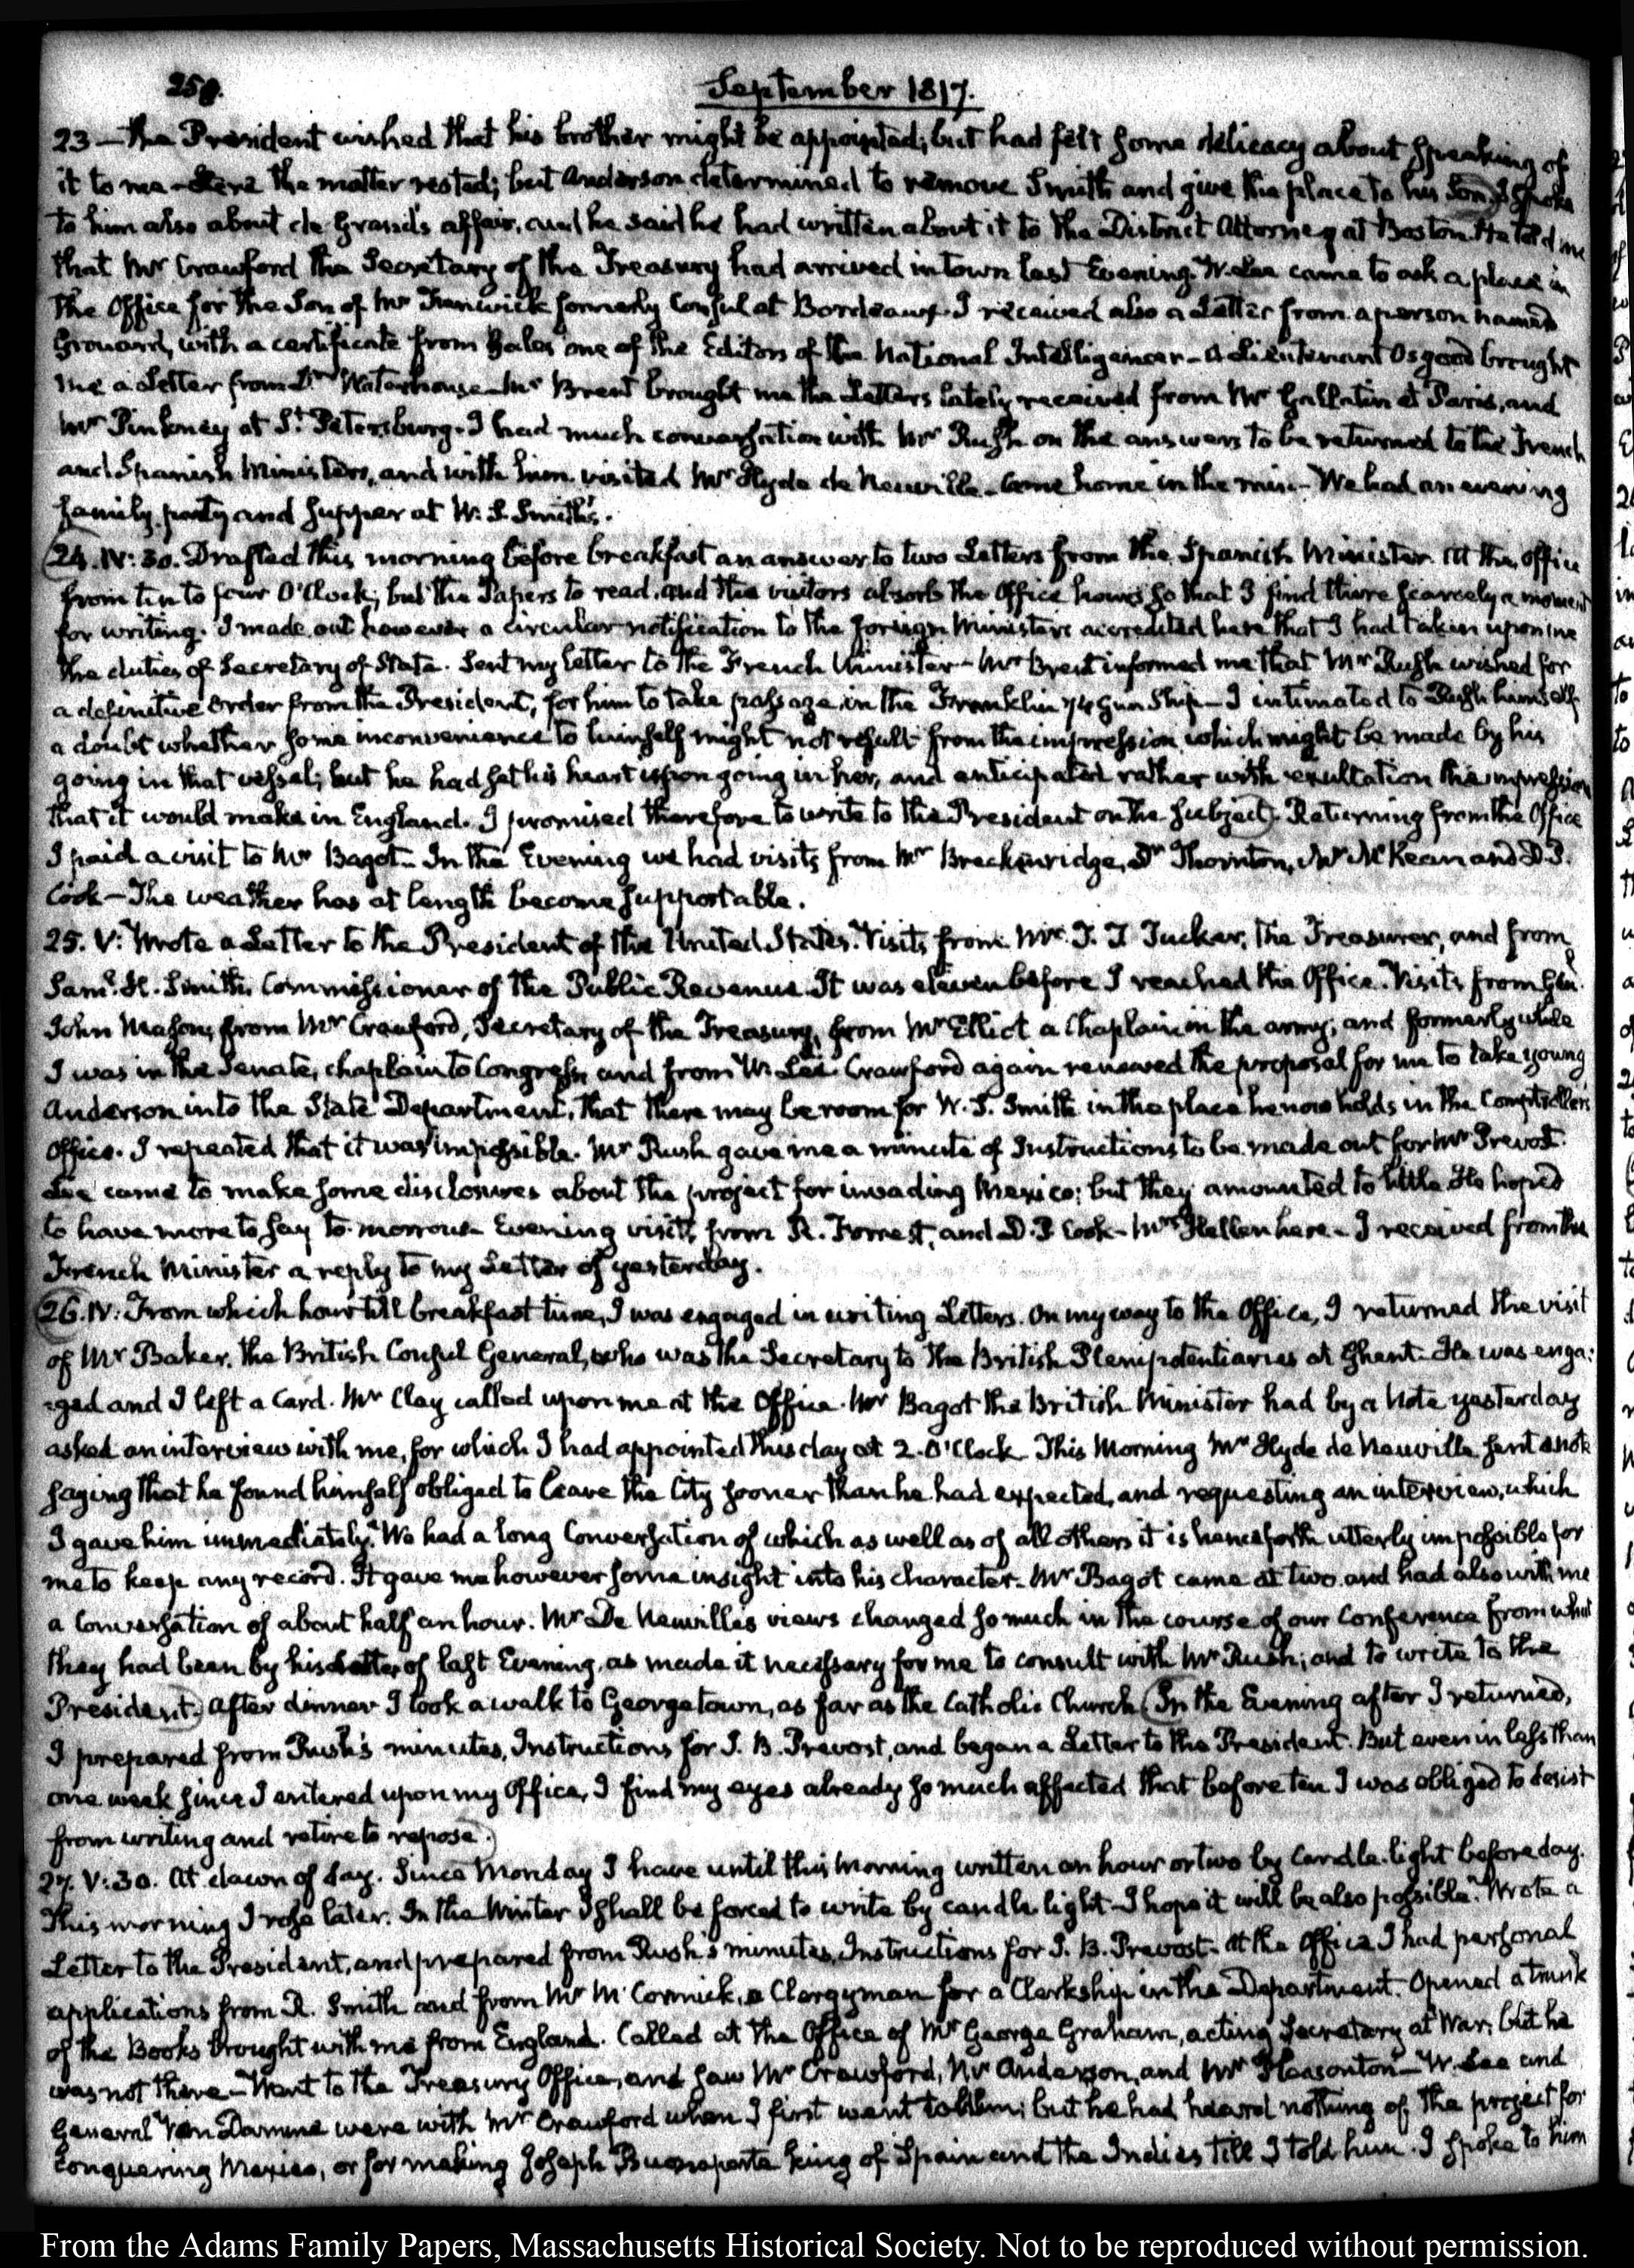 259.
September 1817.
23 — The President wished that his brother might be appointed; but had felt some delicacy about speaking of
it to me — Here the matter rested; but Anderson determined to remove Smith and give the place to his Son. I spoke
to him also about de Grand's affair, and he said he had written about it to the District Attorney at Boston. He told me
that Mr Crawford the Secretary of the Treasury had arrived in town last Evening. W. Lee came to ask a place in
the Office for the Son of Mr Fenwick formerly Consul at Bordeaux. I received also a Letter from a person named
Grouard, with a certificate from Gales one of the Editors of the National Intelligencer — A Lieutenant Osgood brought
me a Letter from Dr Waterhouse — Mr Brent brought me the Letters lately received from Mr Gallatin at Paris, and
Mr Pinkney at St. Petersburg. I had much conversation with Mr Rush on the answers to be returned to the French
and Spanish Ministers, and with him visited Mr Hyde de Neuville — Came home in the rain — We had an evening
family party and supper at W. S. Smith's.
24. IV: 30. Drafted this morning before breakfast an answer to two Letters from the Spanish Minister. At the office
from ten to four O'Clock; but the Papers to read, and the visitors absorb the Office hours so that I find there scarcely a moment
for writing. I made out however a circular notification to the foreign Ministers accredited here that I had taken upon me
the duties of Secretary of State. Sent my letter to the French Minister — Mr Brent informed me that Mr Rush wished for
a definitive order from the President, for him to take passage in the Franklin 74 gun Ship — I intimated to Rush himself
a doubt whether some inconvenience to himself might not result from the impression which might be made by his
going in that vessel; but he had set his heart upon going in her, and anticipated rather with exultation the impression
that it would make in England. I promised therefore to write to the President on the subject. Returning from the Office
I paid a visit to Mr Bagot. In the Evening we had visits from Mr Breckenridge, Dr Thornton, Mr McKean and D. P.
Cook — The weather has at length become supportable.
25. V: Wrote a Letter to the President of the United States. Visits from Mr T. T. Tucker, the Treasurer, and from
Saml. H. Smith, Commissioner of the Public Revenue. It was eleven before I reached the Office. Visits from Genl.
John Mason, from Mr Crawford, Secretary of the Treasury, from Mr Elliot a Chaplain in the army; and formerly while
I was in the Senate, chaplain to Congress, and from W. Lee. Crawford again renewed the proposal for me to take young
Anderson into the State Department, that there may be room for W. S. Smith in the place he now holds in the Comptroller's
Office. I repeated that it was impossible. Mr Rush gave me a minute of Instructions to be made out for Mr Prevost.
Lee came to make some disclosures about the project for invading Mexico; but they amounted to little. He hoped
to have more to say to-morrow. Evening visits from R. Forrest, and D. P. Cook — Mrs Hellen here — I received from the
French Minister a reply to my Letter of yesterday.
26. IV: From which hour till breakfast time, I was engaged in writing Letters. On my way to the Office, I returned the visit
of Mr Baker, the British Consul General, who was the Secretary to the British Plenipotentiaries at Ghent. He was enga:
:ged and I left a Card. Mr Clay called upon me at the Office. Mr Bagot the British Minister had by a Note yesterday
asked an interview with me, for which I had appointed this day at 2. O'Clock. This Morning Mr Hyde de Neuville sent a note
saying that he found himself obliged to leave the City sooner than he had expected, and requesting an interview, which
I gave him immediately. We had a long Conversation of which as well as of all others it is henceforth utterly impossible for
me to keep any record. It gave me however some insight into his character. Mr Bagot came at two and had also with me
a Conversation of about half an hour. Mr De Neuville's views changed so much in the course of our Conference from what
they had been by his Letter of last Evening, as made it necessary for me to consult with Mr Rush; and to write to the
President. After dinner I took a walk to Georgetown, as far as the Catholic Church. In the Evening after I returned,
I prepared from Rush's minutes, Instructions for J. B. Prevost, and began a Letter to the President. But even in less than
one week since I entered upon my Office, I find my eyes already so much affected that before ten I was obliged to desist
from writing and retire to repose.
27. V: 30. At dawn of day. Since Monday I have until this Morning written an hour or two by Candle-light before day.
This morning I rose later. In the Winter I shall be forced to write by candle light — I hope it will be also possible. Wrote a
Letter to the President, and prepared from Rush's minutes, Instructions for J. B. Prevost. At the Office I had personal
applications from R. Smith and from Mr McCormick, a Clergyman for a Clerkship in the Department. Opened a trunk
of the Books brought with me from England. Called at the Office of Mr George Graham, acting Secretary at War; but he
was not there — Went to the Treasury Office, and saw Mr Crawford, Mr Anderson, and Mr Pleasonton — W. Lee and
General Van Damme were with Mr Crawford when I first went to him; but he had heard nothing of the project for
conquering Mexico, or for making Joseph Buonaparte king of Spain and the Indies till I told him. I spoke to him
From the Adams Family Papers, Massachusetts Historical Society. Not to be reproduced without permission.